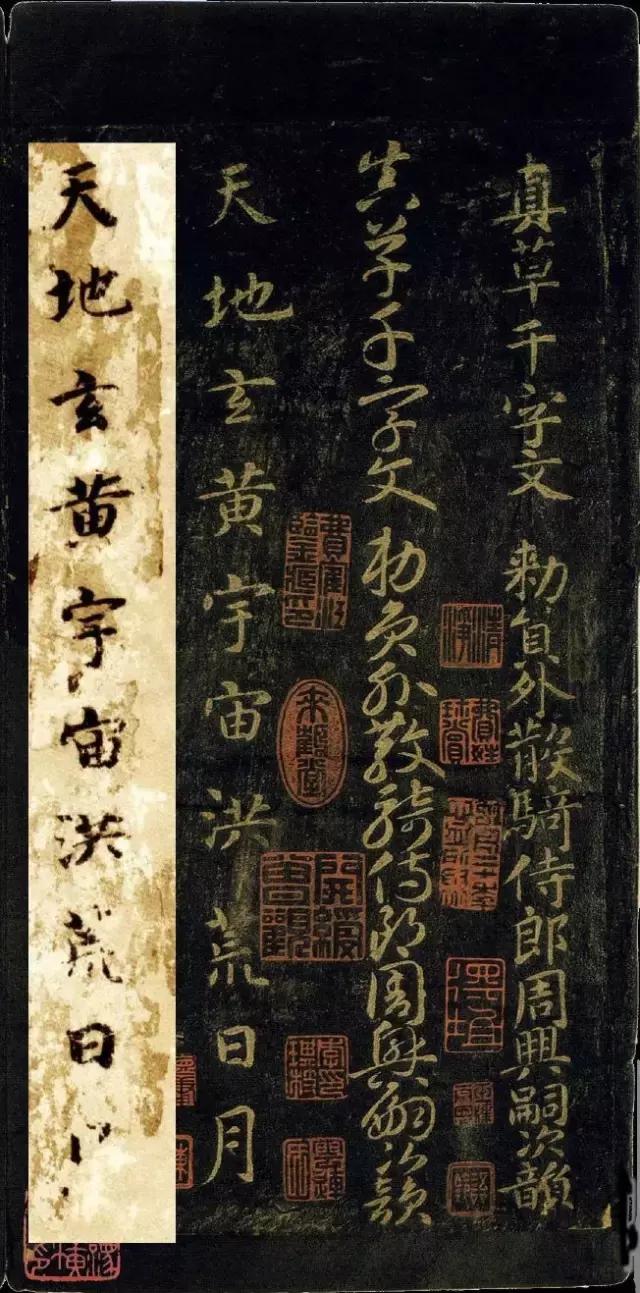 真草千字文敕員外散騎侍郎周興嗣次韻
真草千字文敕員外散騎侍郎周興嗣次韻
天地玄黃宇宙洪荒日月
天地玄黃宇宙洪荒日
來觀堂